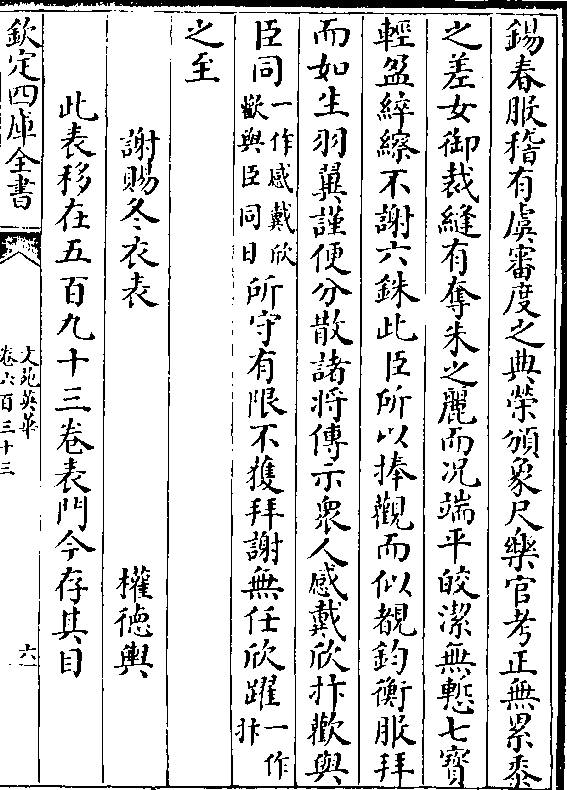 錫春服稽有虞審度之典榮頒象尺樂官考正無累黍
之差女御裁縫有奪朱之麗而况端平皎潔無慙七寳
輕盈綷縩不謝六銖此臣所以捧觀而似覩鈞衡服拜
而如生羽翼謹便分散諸將傳示衆人感戴欣抃歡與
臣同一作感戴欣歡與臣同日所守有限不獲拜謝無任欣躍一作抃
之至
謝賜冬衣表 權德輿
此表移在五百九十三卷表門今存其目
欽定四庫全書
文苑英華
卷六百三十三
六